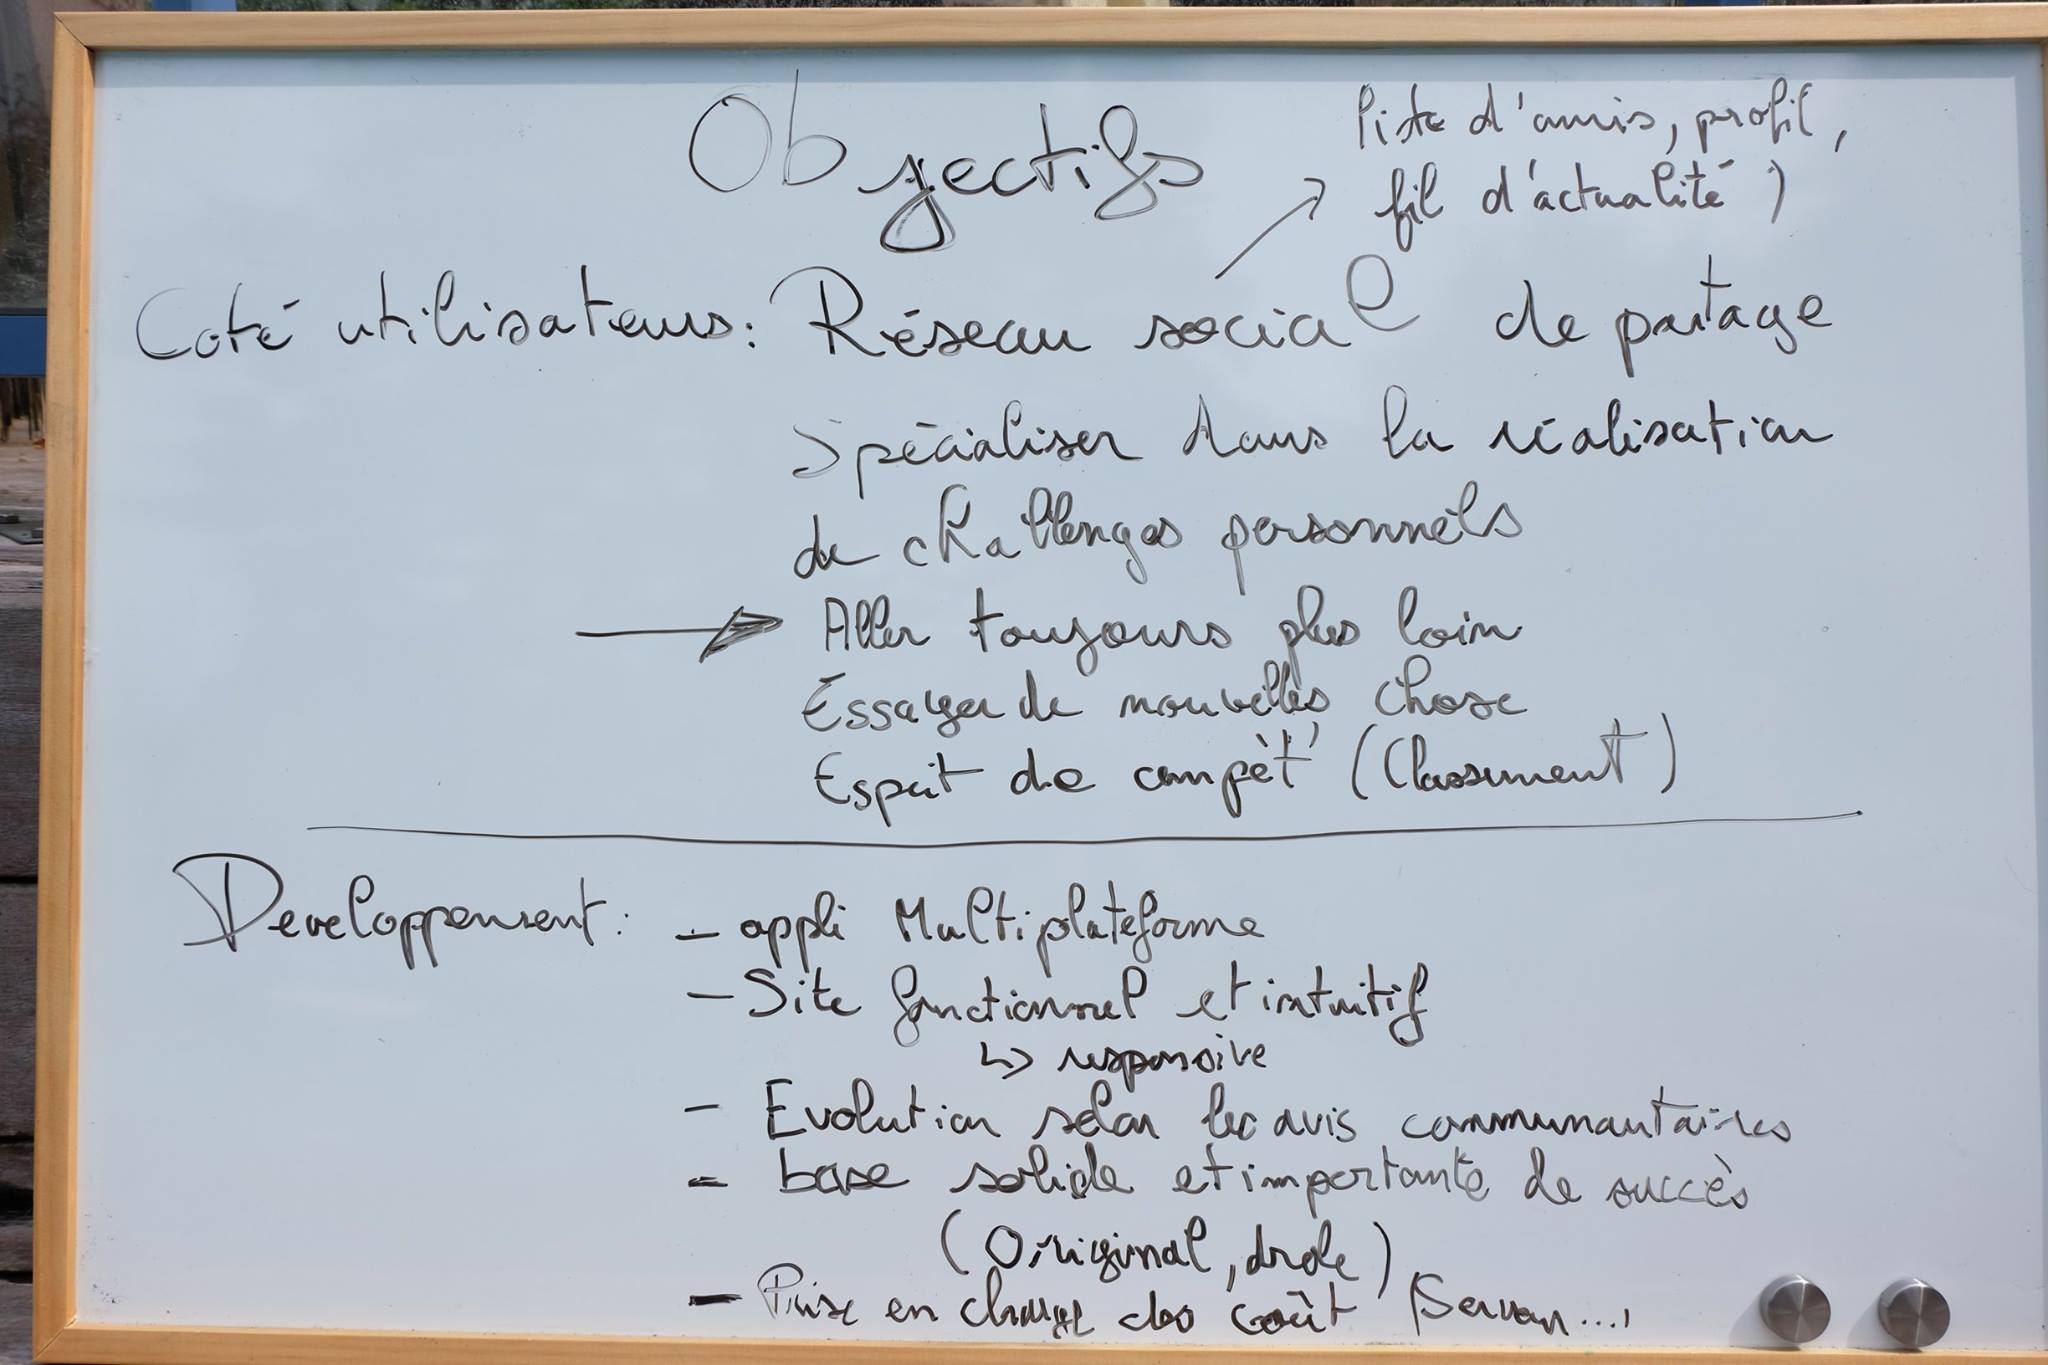 Objectifs
liste d'amis, profil,
fil d'actualité )
Coté utilisateurs: Réseau social de partage
Spécialiser dans la réalisation
de challenges personnels
Aller toujours plus loin
Essayer de nouvelles chose
Esprit de compèt' (Classement)
Developpement: - appli Multiplateforme
- Site fonctionnel et intuitif
↳ responsive
- Evolution selon les avis communautaires
- base solide et importante de succès
(Original, drole)
- Prise en charge des coût (Serveur...,